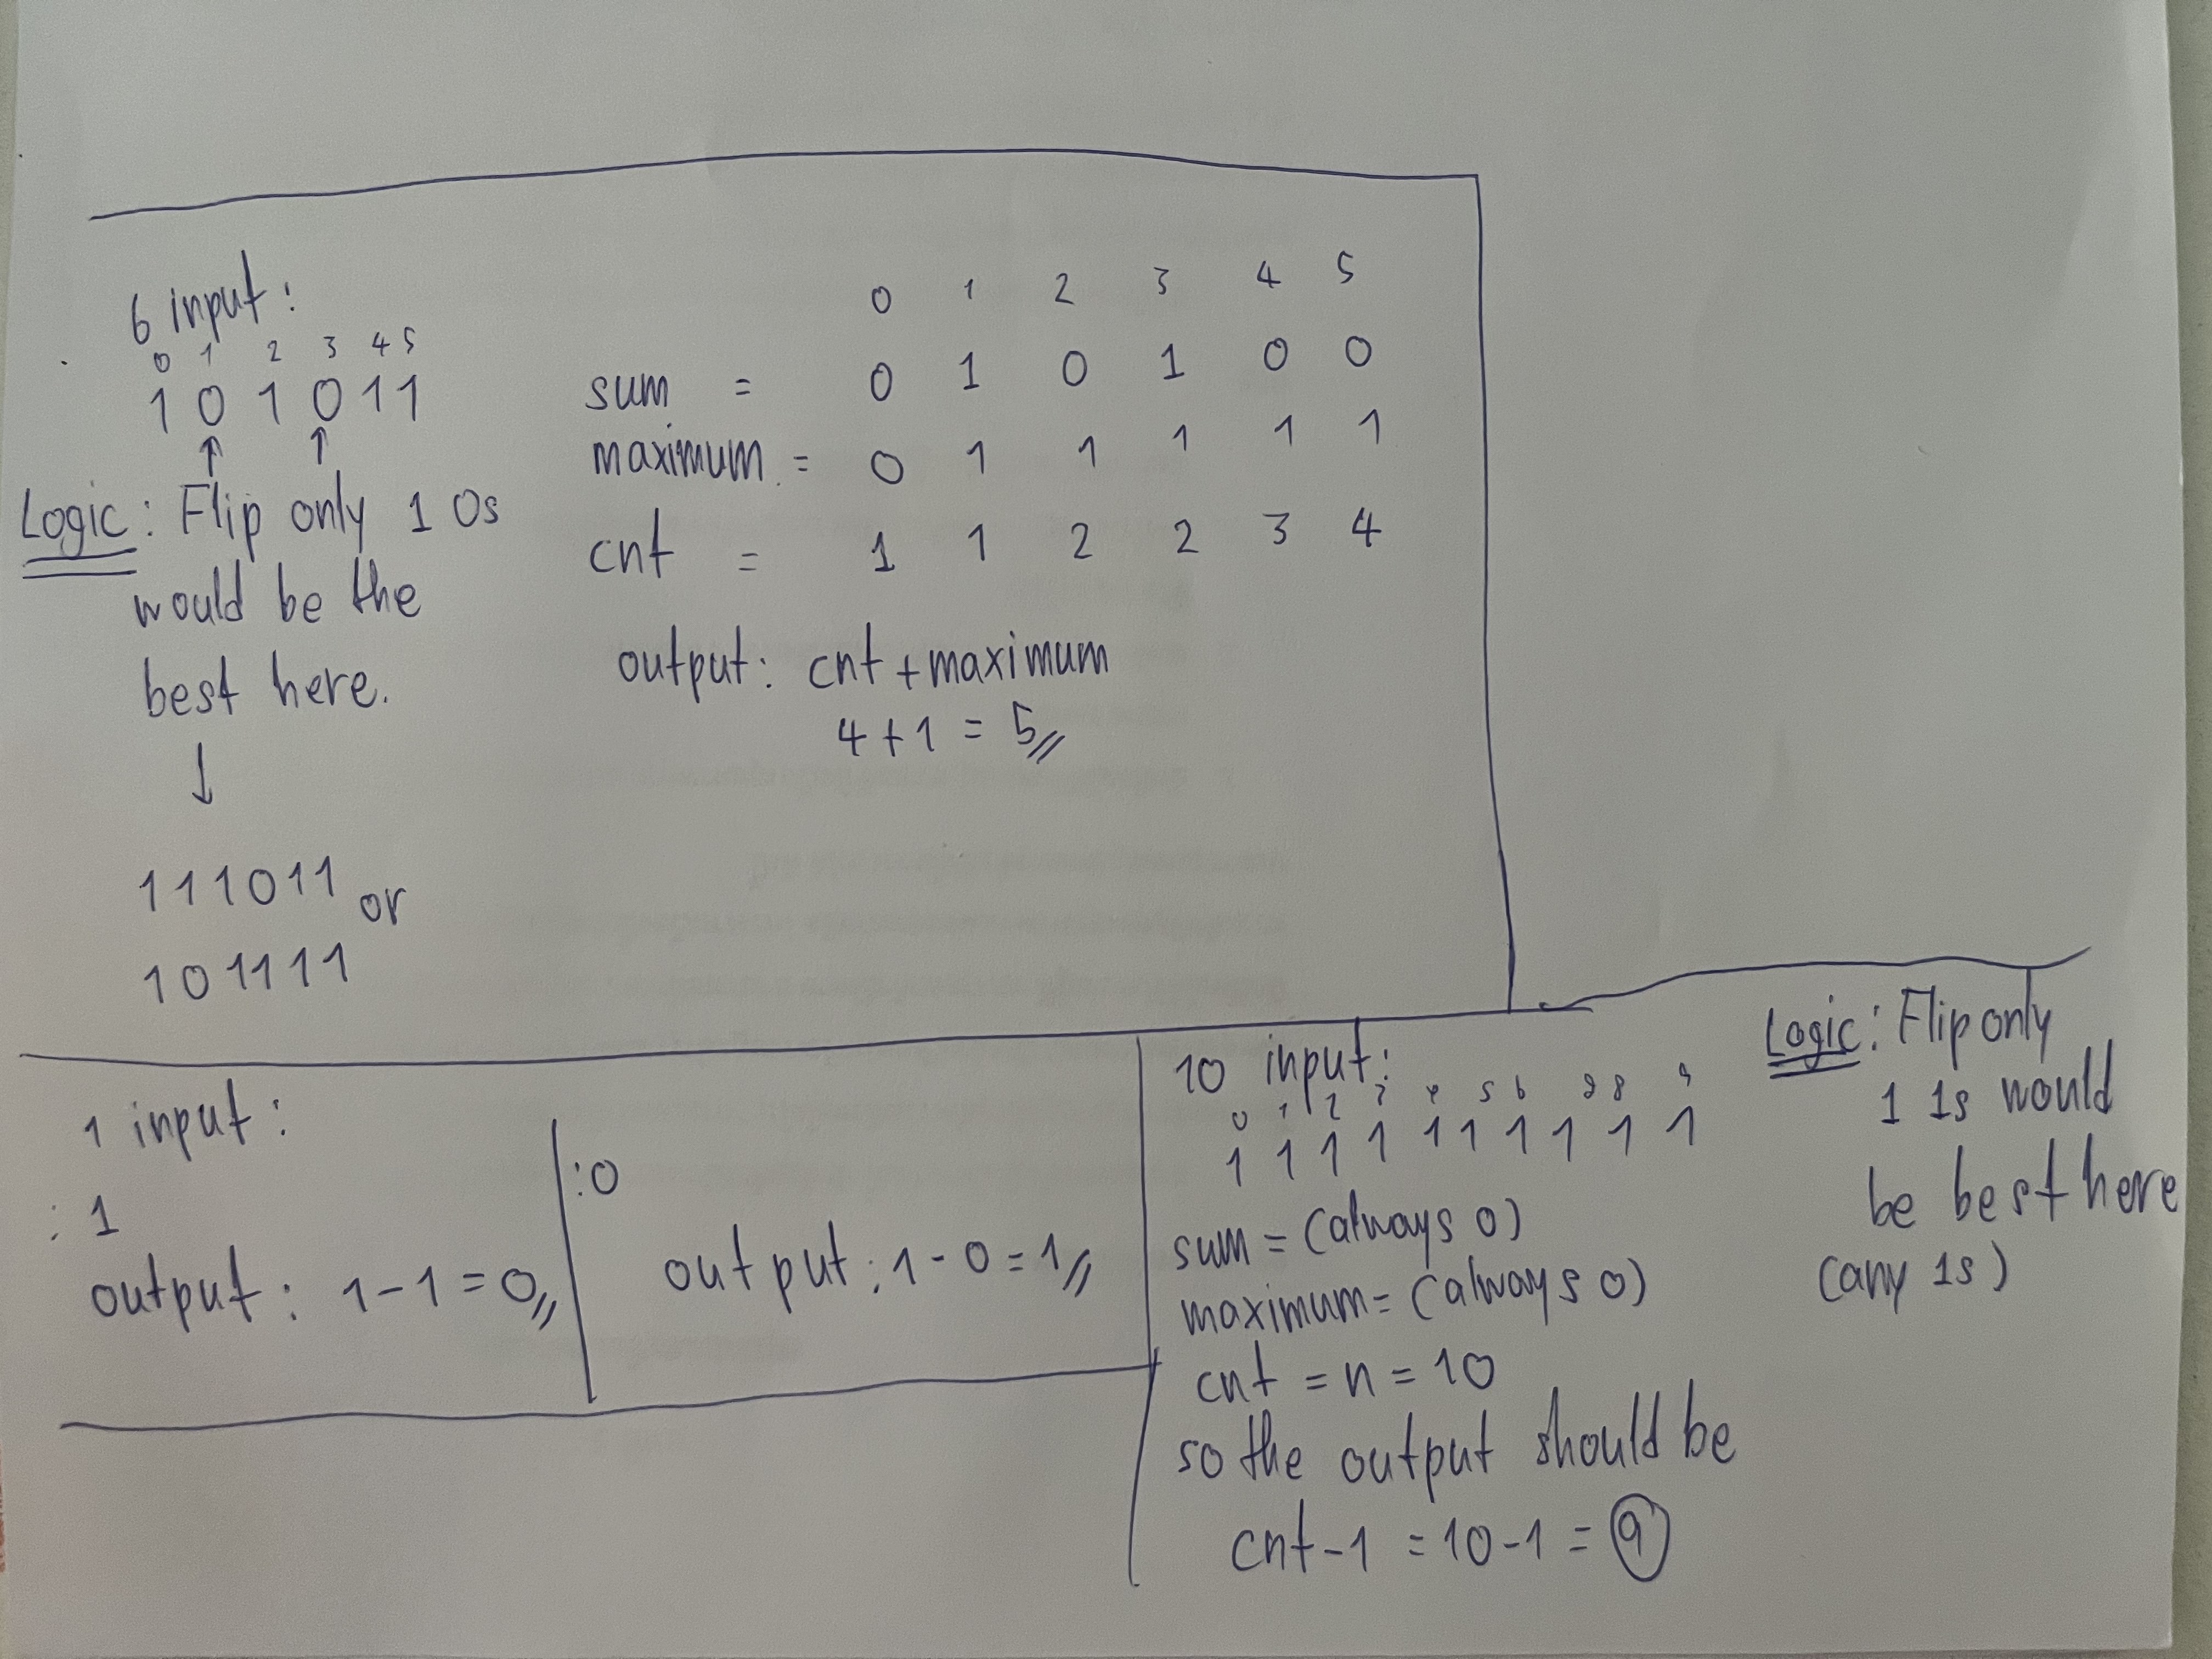 6 input:
0 1 2 3 4 5
1 0 1 0 1 1
↑ ↑
Logic: Flip only 1 0s
would be the
best here.
↓
111011 or
101111
0 1 2 3 4 5
sum = 0 1 0 1 0 0
maximum = 0 1 1 1 1 1
cnt = 1 1 2 2 3 4
output: cnt + maximum
4 + 1 = 5
1 input:
: 1
output: 1 - 1 = 0
: 0
output: 1 - 0 = 1
10 input:
0 1 2 3 4 5 6 8 9
1 1 1 1 1 1 1 1 1 1
sum = (always 0)
maximum = (always 0)
cnt = n = 10
so the output should be
cnt - 1 = 10 - 1 = 9
Logic: Flip only
1 1s would
be best here
(any 1s)